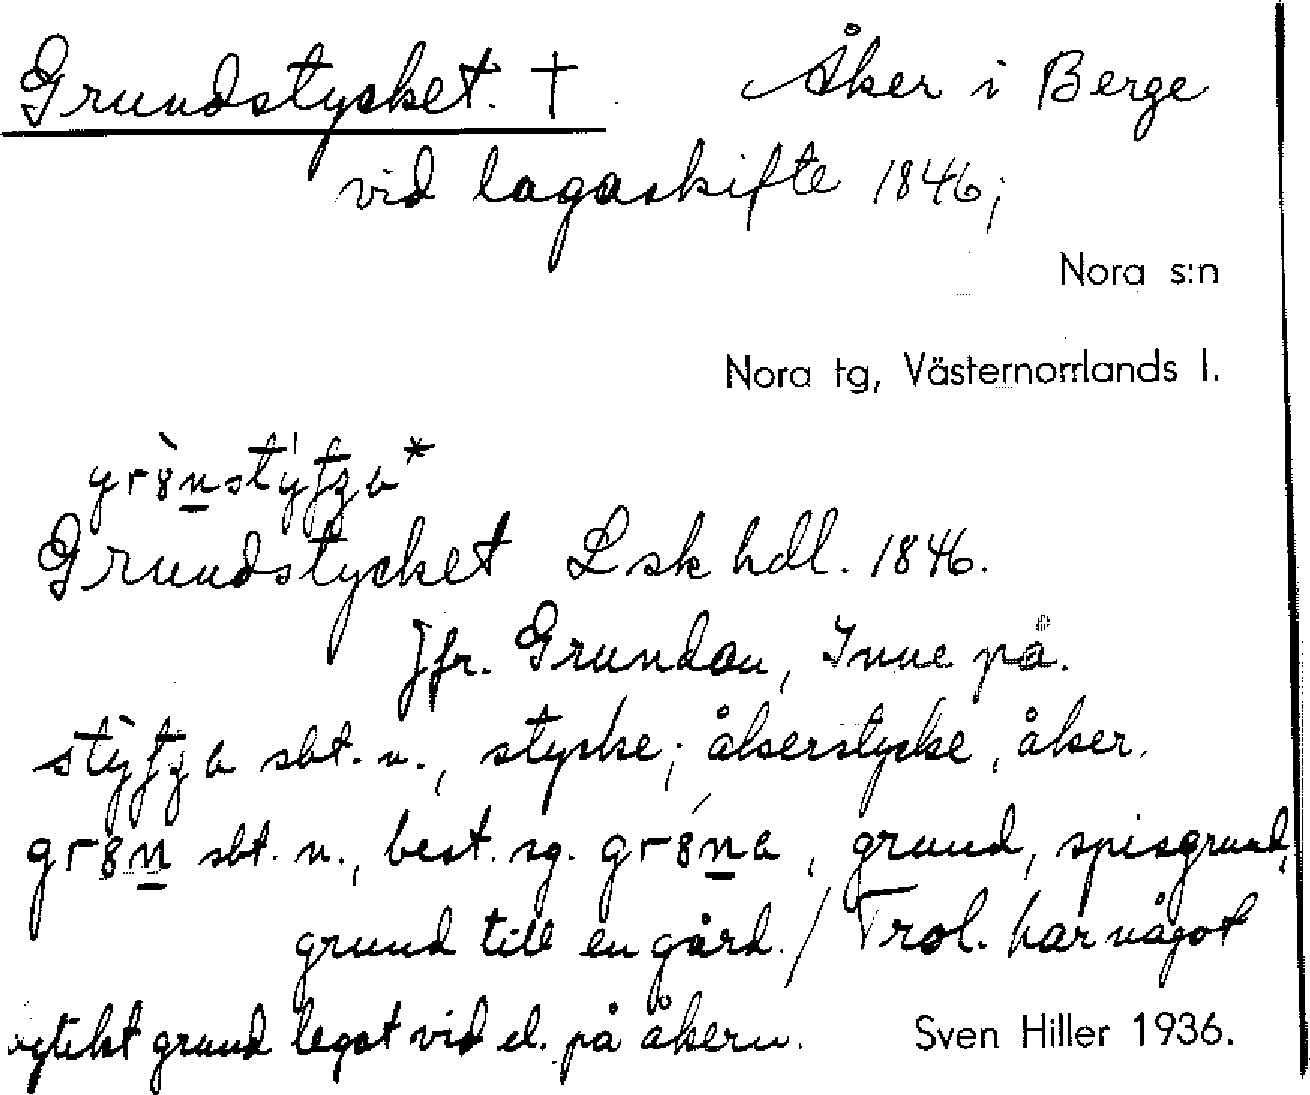 Grundstycket. † Åker i Berge
vid lagaskifte 1846;
Nora s:n
Nora tg, Västernorrlands l.
Grundstycket Lsk hdl. 1846.
Jfr. Grundan, Inne på.
sbt. n., stycke; åkerstycke, åker.
sbt. n., best. sg. , grund, spisgrund,
grund till en gård. / Trol. har något
grund legat vid el. på åkern. Sven Hiller 1936.